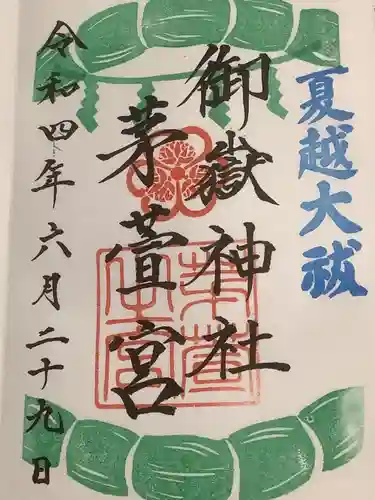 夏越大祓
御嶽神社
茅萱宮
令和四年六月二十九日